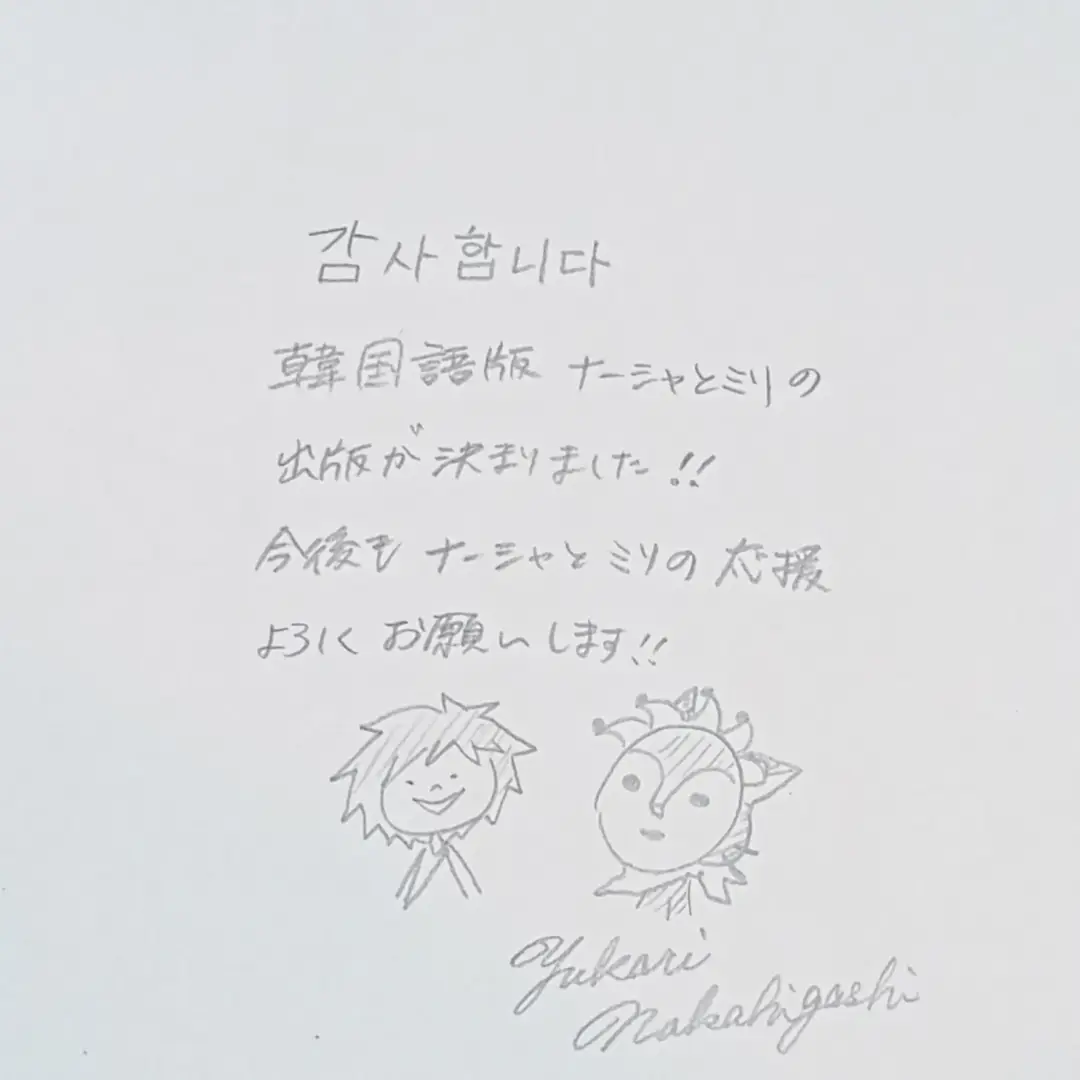 감사합니다
韓国語版 ナーシャとミリの
出版が決まりました!!
今後も ナーシャと ミリの 応援
よろしく お願いします!!
Yukari
Nakahigashi